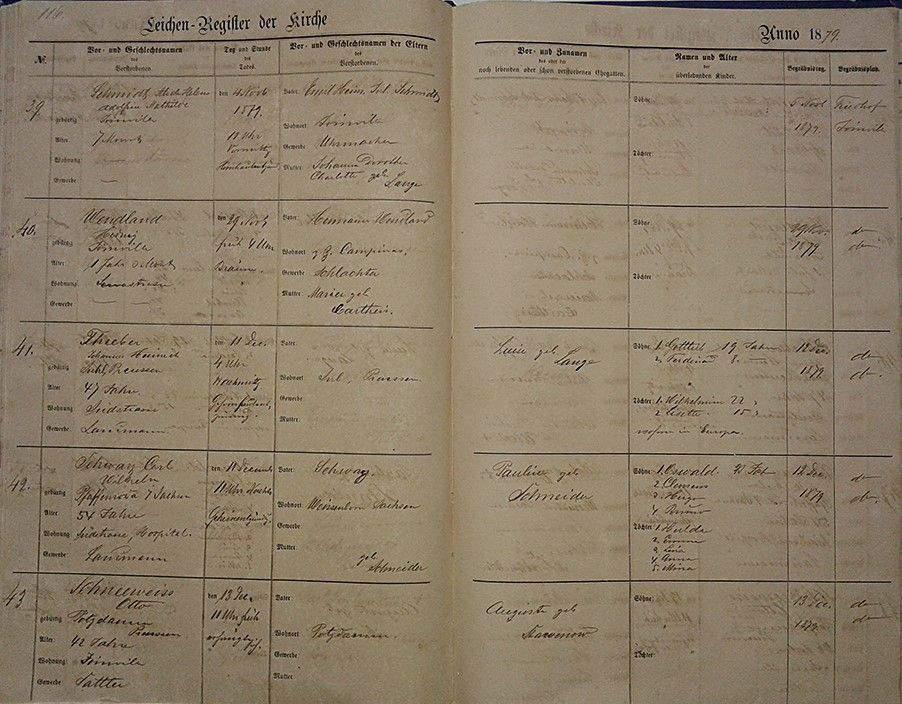 116.
Leichen-Register der Kirche
Anno 1879.
№.
Vor- und Geschlechtsnamen
des
Verstorbenen.
Tag und Stunde
des
Todes.
Vor- und Geschlechtsnamen der Eltern
des
Verstorbenen.
Vor- und Zunamen
des oder der
noch lebenden oder schon verstorbenen Ehegatten.
Namen und Alter
der
überlebenden Kinder.
Begräbnißtag.
Begräbnißplatz.
39.
Schmidt
Adolfine Mathilde
gebürtig Joinville
Alter 7 Monat
Wohnung:
Gewerbe: —
den 4 Novb
1879.
Uhr
Vater: Emil Heinr. Schmidt
Wohnort Joinville
Gewerbe Uhrmacher
Mutter: Johanna Dorothea
Charlotte geb.
Lange
Söhne:
Töchter:
5 Novb
1879.
Friedhof
Joinville
40.
Wendland
Hedwig
gebürtig Joinville
Alter: 1 Jahr Monat
Wohnung:
Gewerbe —
den 29 Novb
früh 4 Uhr
Bräune.
Vater: Hermann Wendland
Wohnort z. Z. Campinas
Gewerbe: Schlachter
Mutter Marie geb
Söhne
Töchter
1879
do
do
41.
Johann Heinrich
gebürtig: Suhl, Preussen
Alter 47 Jahre
Wohnung Südstrasse
Gewerbe: Landmann.
den 11 Dec.
4 Uhr
Nachmittg
Vater:
Wohnort Suhl, Preussen
Gewerbe:
Mutter:
Luise geb.
Lange
Söhne: 1. Gottlieb 19 Jahre
2. Ferdinand 8 —
Töchter 1. Wilhelmine 22 "
2 Lisette 15 "
in Europa
12 Dec.
1879
do
do.
42.
Carl
Wilhelm
gebürtig Sachsen
Alter: 54 Jahre
Wohnung: Südstrasse, Hospital.
Gewerbe: Landmann
den 11 Decemb
11 Uhr Nachts
Vater:
Wohnort: Weissenborn Sachsen
Gewerbe:
Mutter:
geb
Schneider
Pauline geb
Schneider
Söhne 1. Oswald
2. Clemens
3. Hugo
4. Bruno
Töchter 1. Hulda
2. Emma
3. Lina
4. Anna
5. Mina
12 Dec.
1879
do
do.
43
Schneeweiss
Otto
gebürtig Potzdamm
Preussen
Alter: 42 Jahre
Wohnung: Joinville
Gewerbe: Sattler
den 13 Dec.
11 Uhr früh
Vater:
Wohnort Potzdamm.
Gewerbe
Mutter
Auguste geb
Söhne:
Töchter:
13 Dec.
1879.
do
do